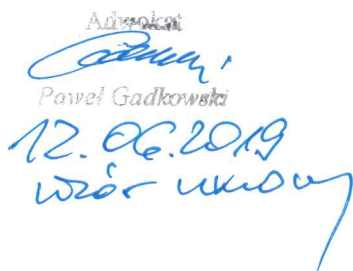 Adwokat
Paweł Gadkowski
12.06.2019
wzór umowy